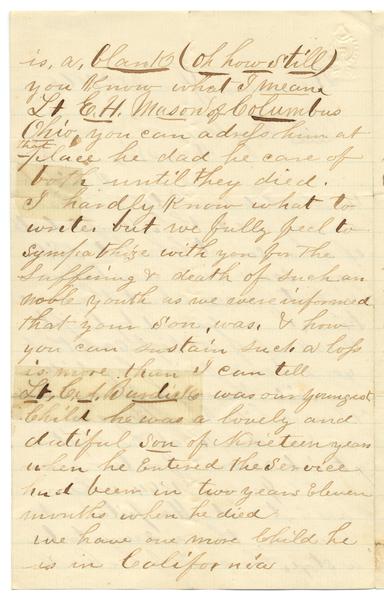 is, a, blank (Oh how still)
you Know what I mean
Lt E. H. Mason of Columbus
Ohio, you can adress him at
that
place he dad he care of
both until they died.
I hardly Know what to
write but we fully feel to
sympathize with you for the
suffering & death of such an
noble youth as we were informed
that your son, was. & how
you can sustain such a loss
is more than I can tell
Lt. C. S. was our youngest
Child he was a lovely and
dutiful son of Nineteen years
when he Entered the Service
had been in two years Eleven
months when he died
we have one more Child he
is in California